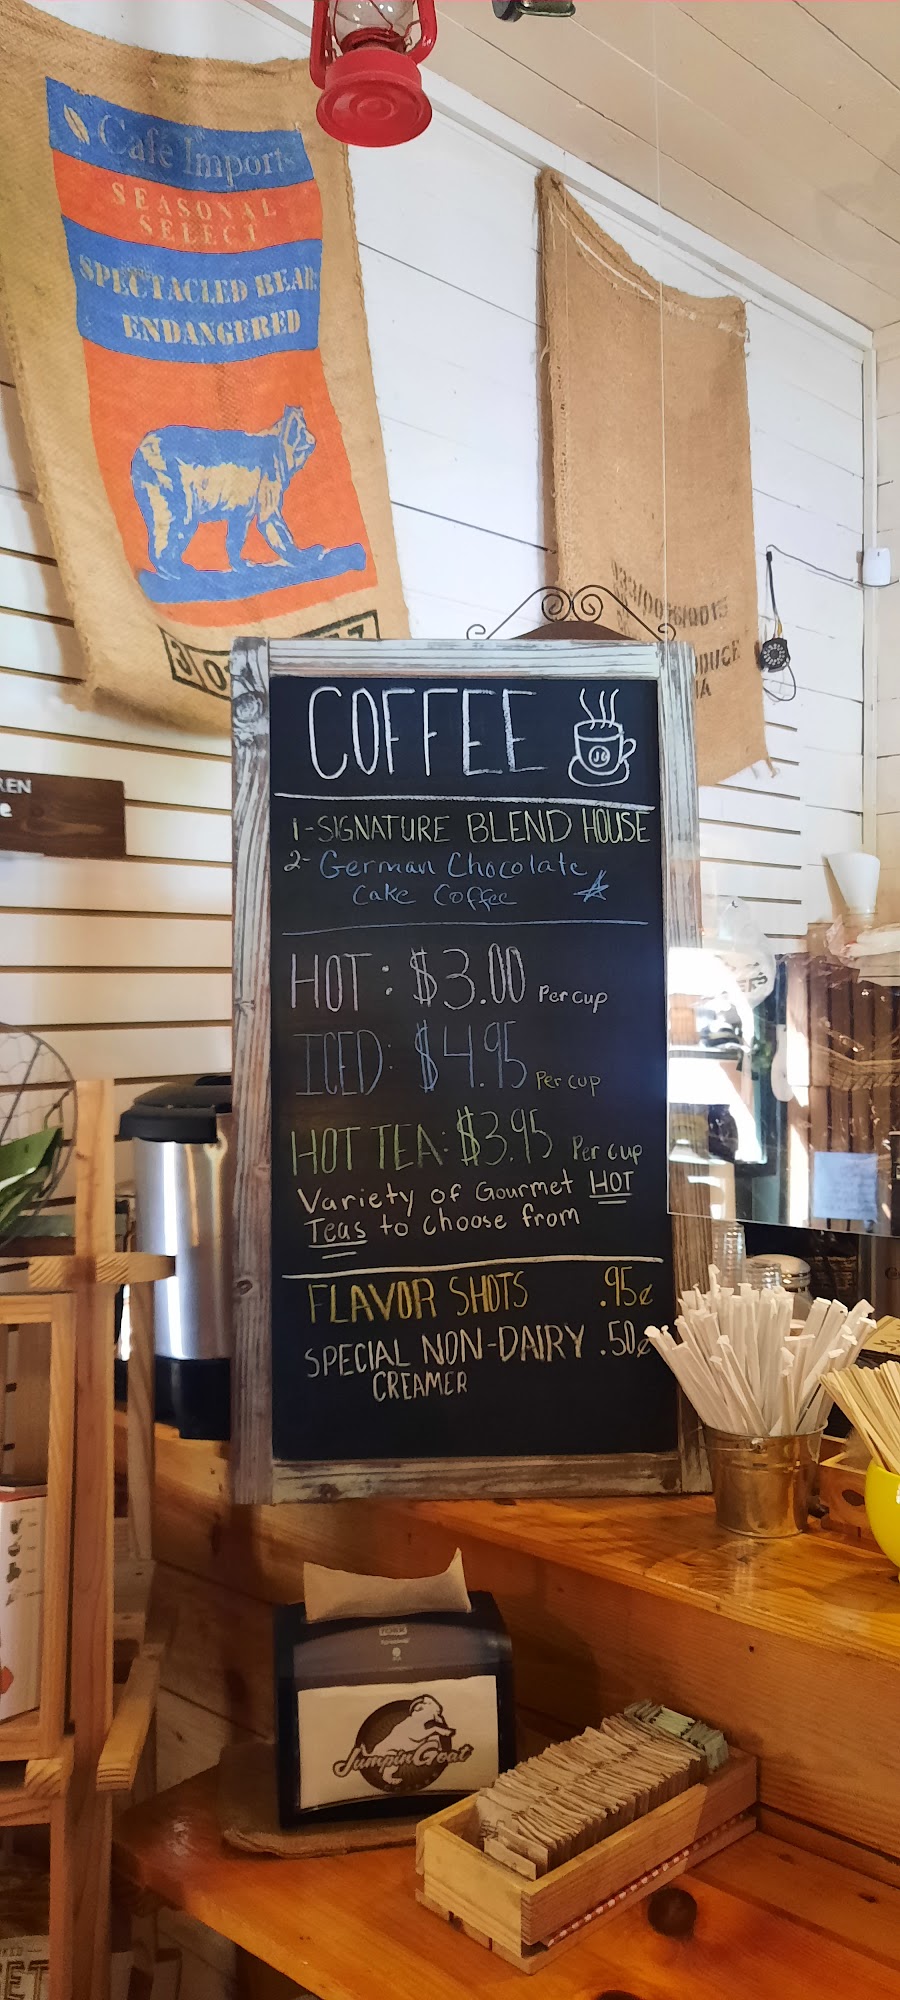 Café Imports
SEASONAL
SELECT
SPECTACLED BEAR
ENDANGERED
COFFEE
JG
1-SIGNATURE BLEND HOUSE
2- German Chocolate
Cake Coffee
HOT: $3.00 Per cup
ICED: $4.95 Per cup
HOT TEA: $3.95 Per cup
Variety of Gourmet HOT
Teas to choose from
FLAVOR SHOTS .95¢
SPECIAL NON-DAIRY .50¢
CREAMER
TORK
JumpinGoat